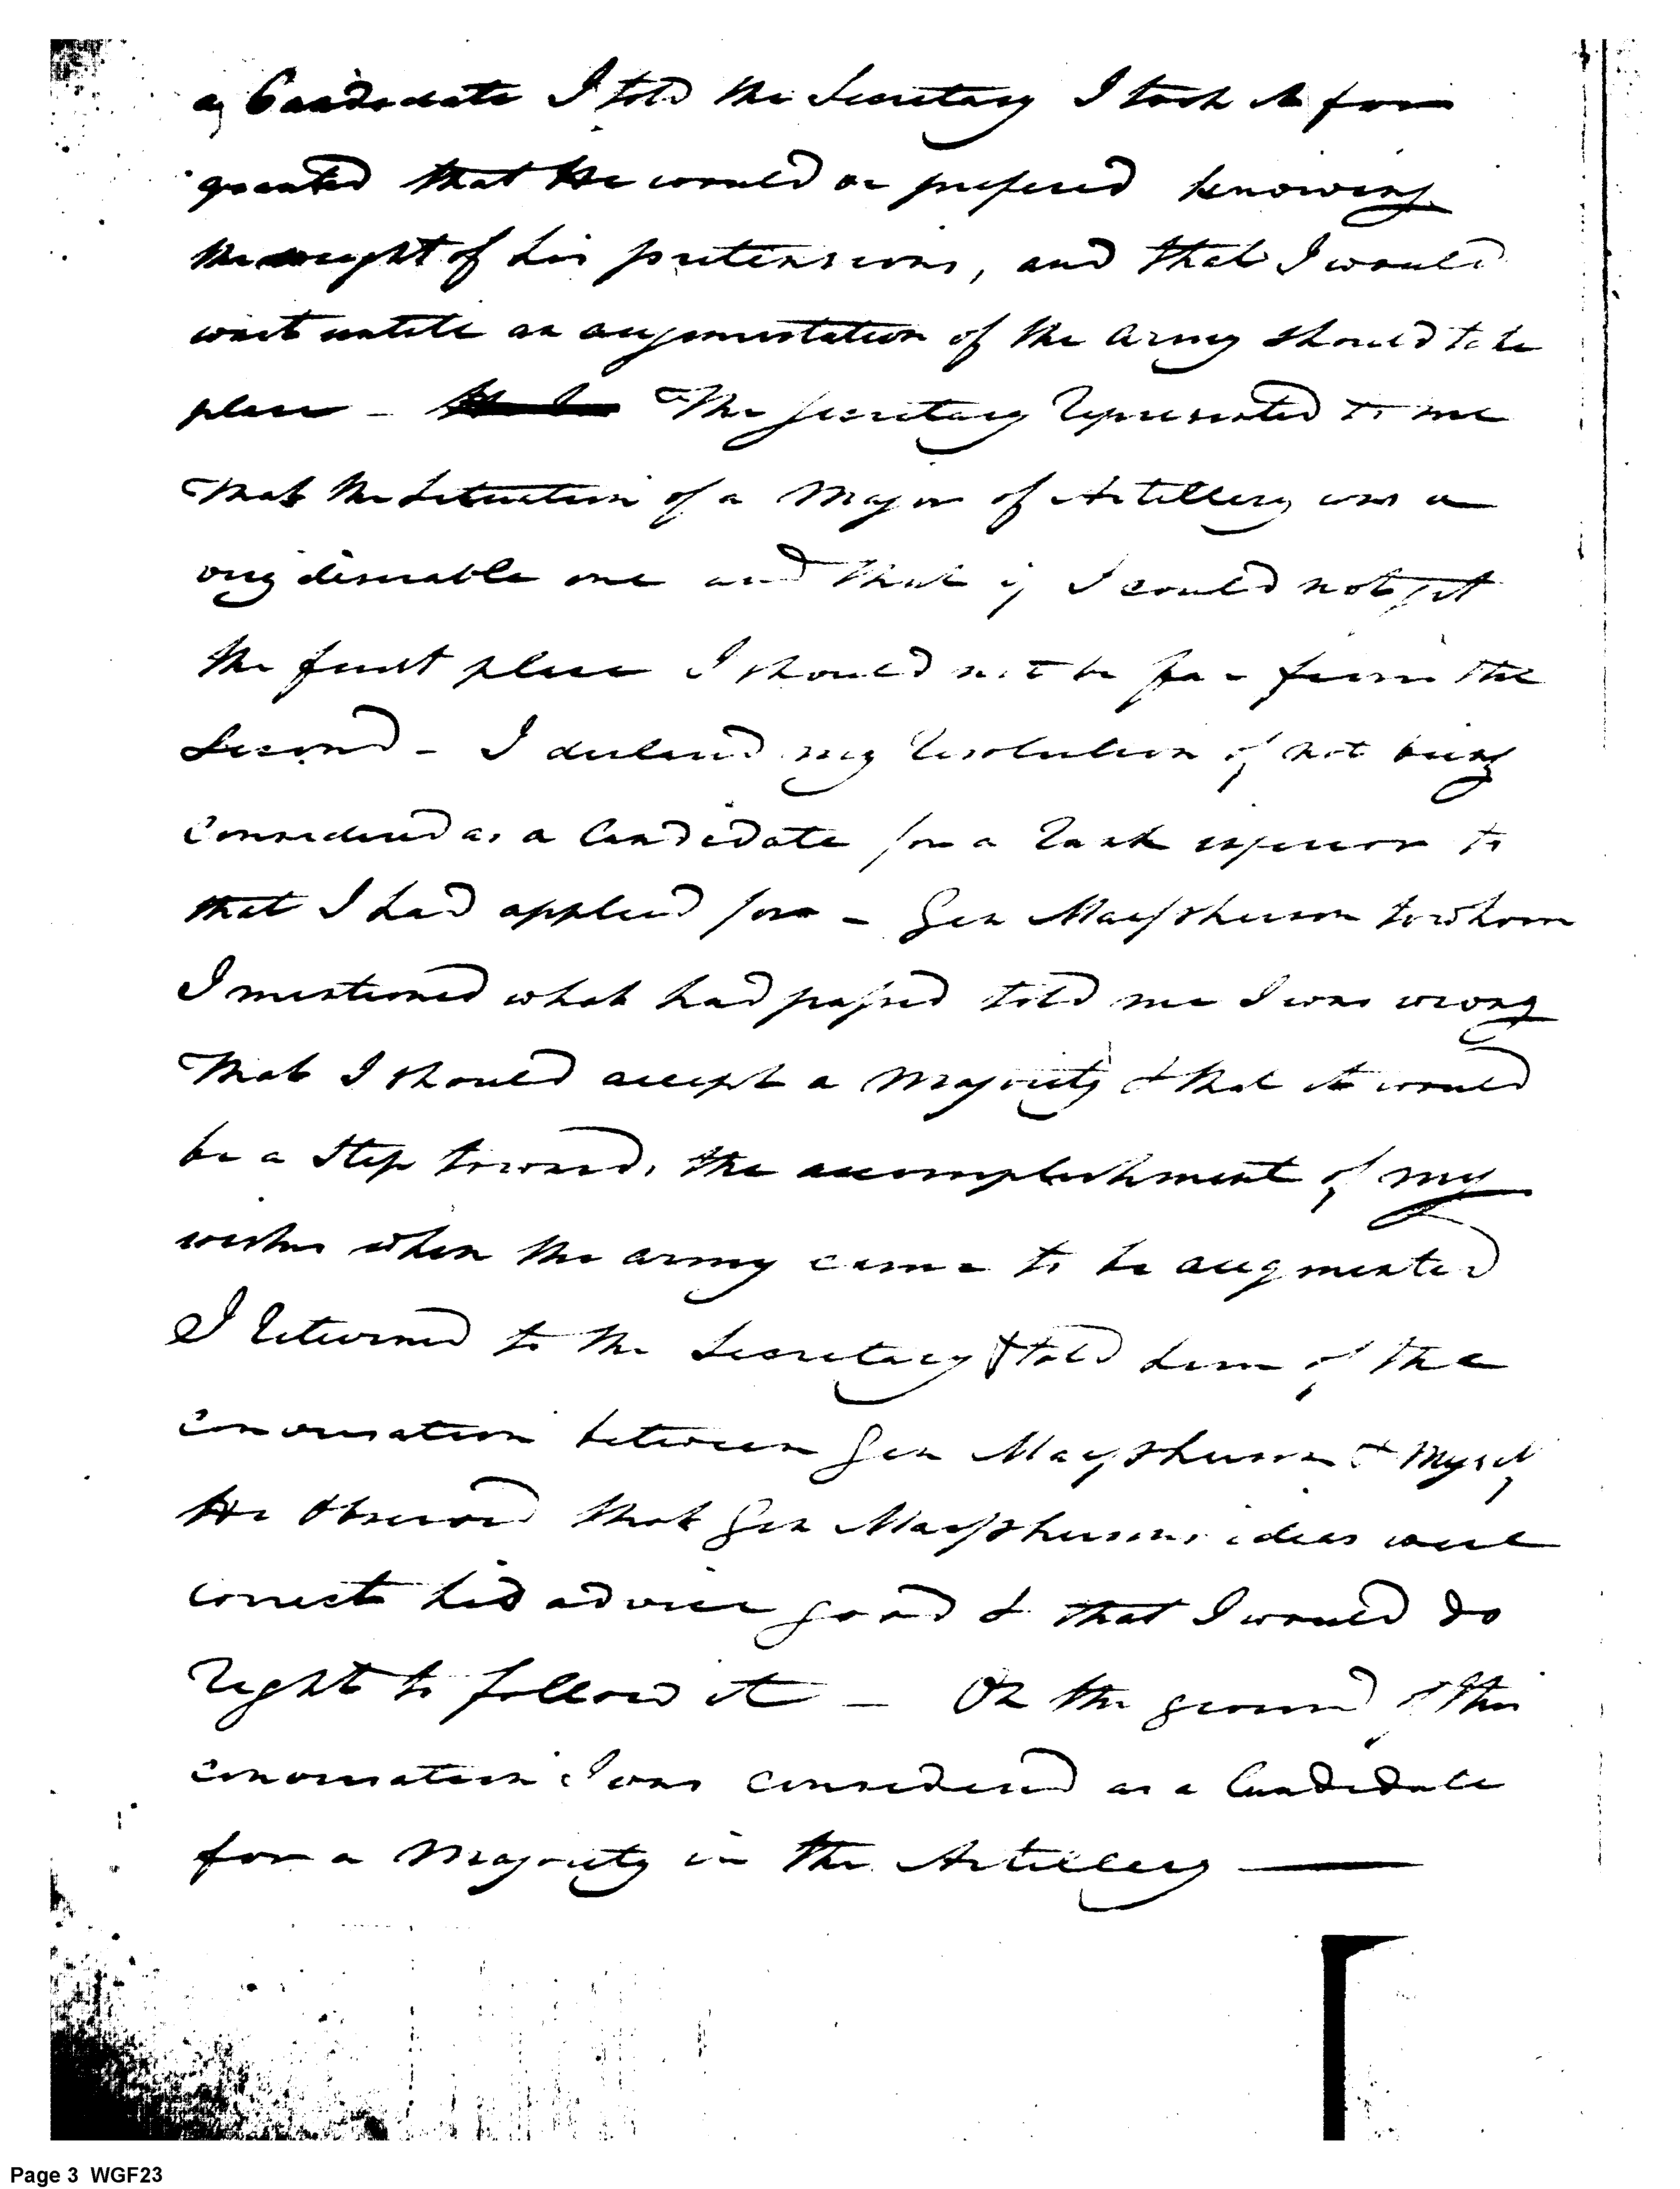 a Candidate I told the Secretary I took it for
granted that He would be prefered knowing
the weight of his pretensions, and that I would
wait untill an augmentation of the Army should take
place - The Secretary represented to me
that the Situation of a Major of Artillery was a
very desirable one and that if I could not get
the first place I should not be far from the
Second - I declared my resolution of not being
Considered as a Candidate for a rank inferior to
that I had applied for - Gen Macpherson to whom
I mentioned what had passed told me I was wrong
that I should accept a Majority & that it would
be a Step towards the accomplishment of my
wishes when the army came to be augmented
I returned to the Secretary & told him of the
conversation between Gen Macpherson & Myself
He Observed that Gen Macphersons ideas were
correct his advice good & that I would do
right to follow it - On the ground of this
conversation I was considered as a Candidate
for a Majority in the Artillery —
Page 3 WGF23